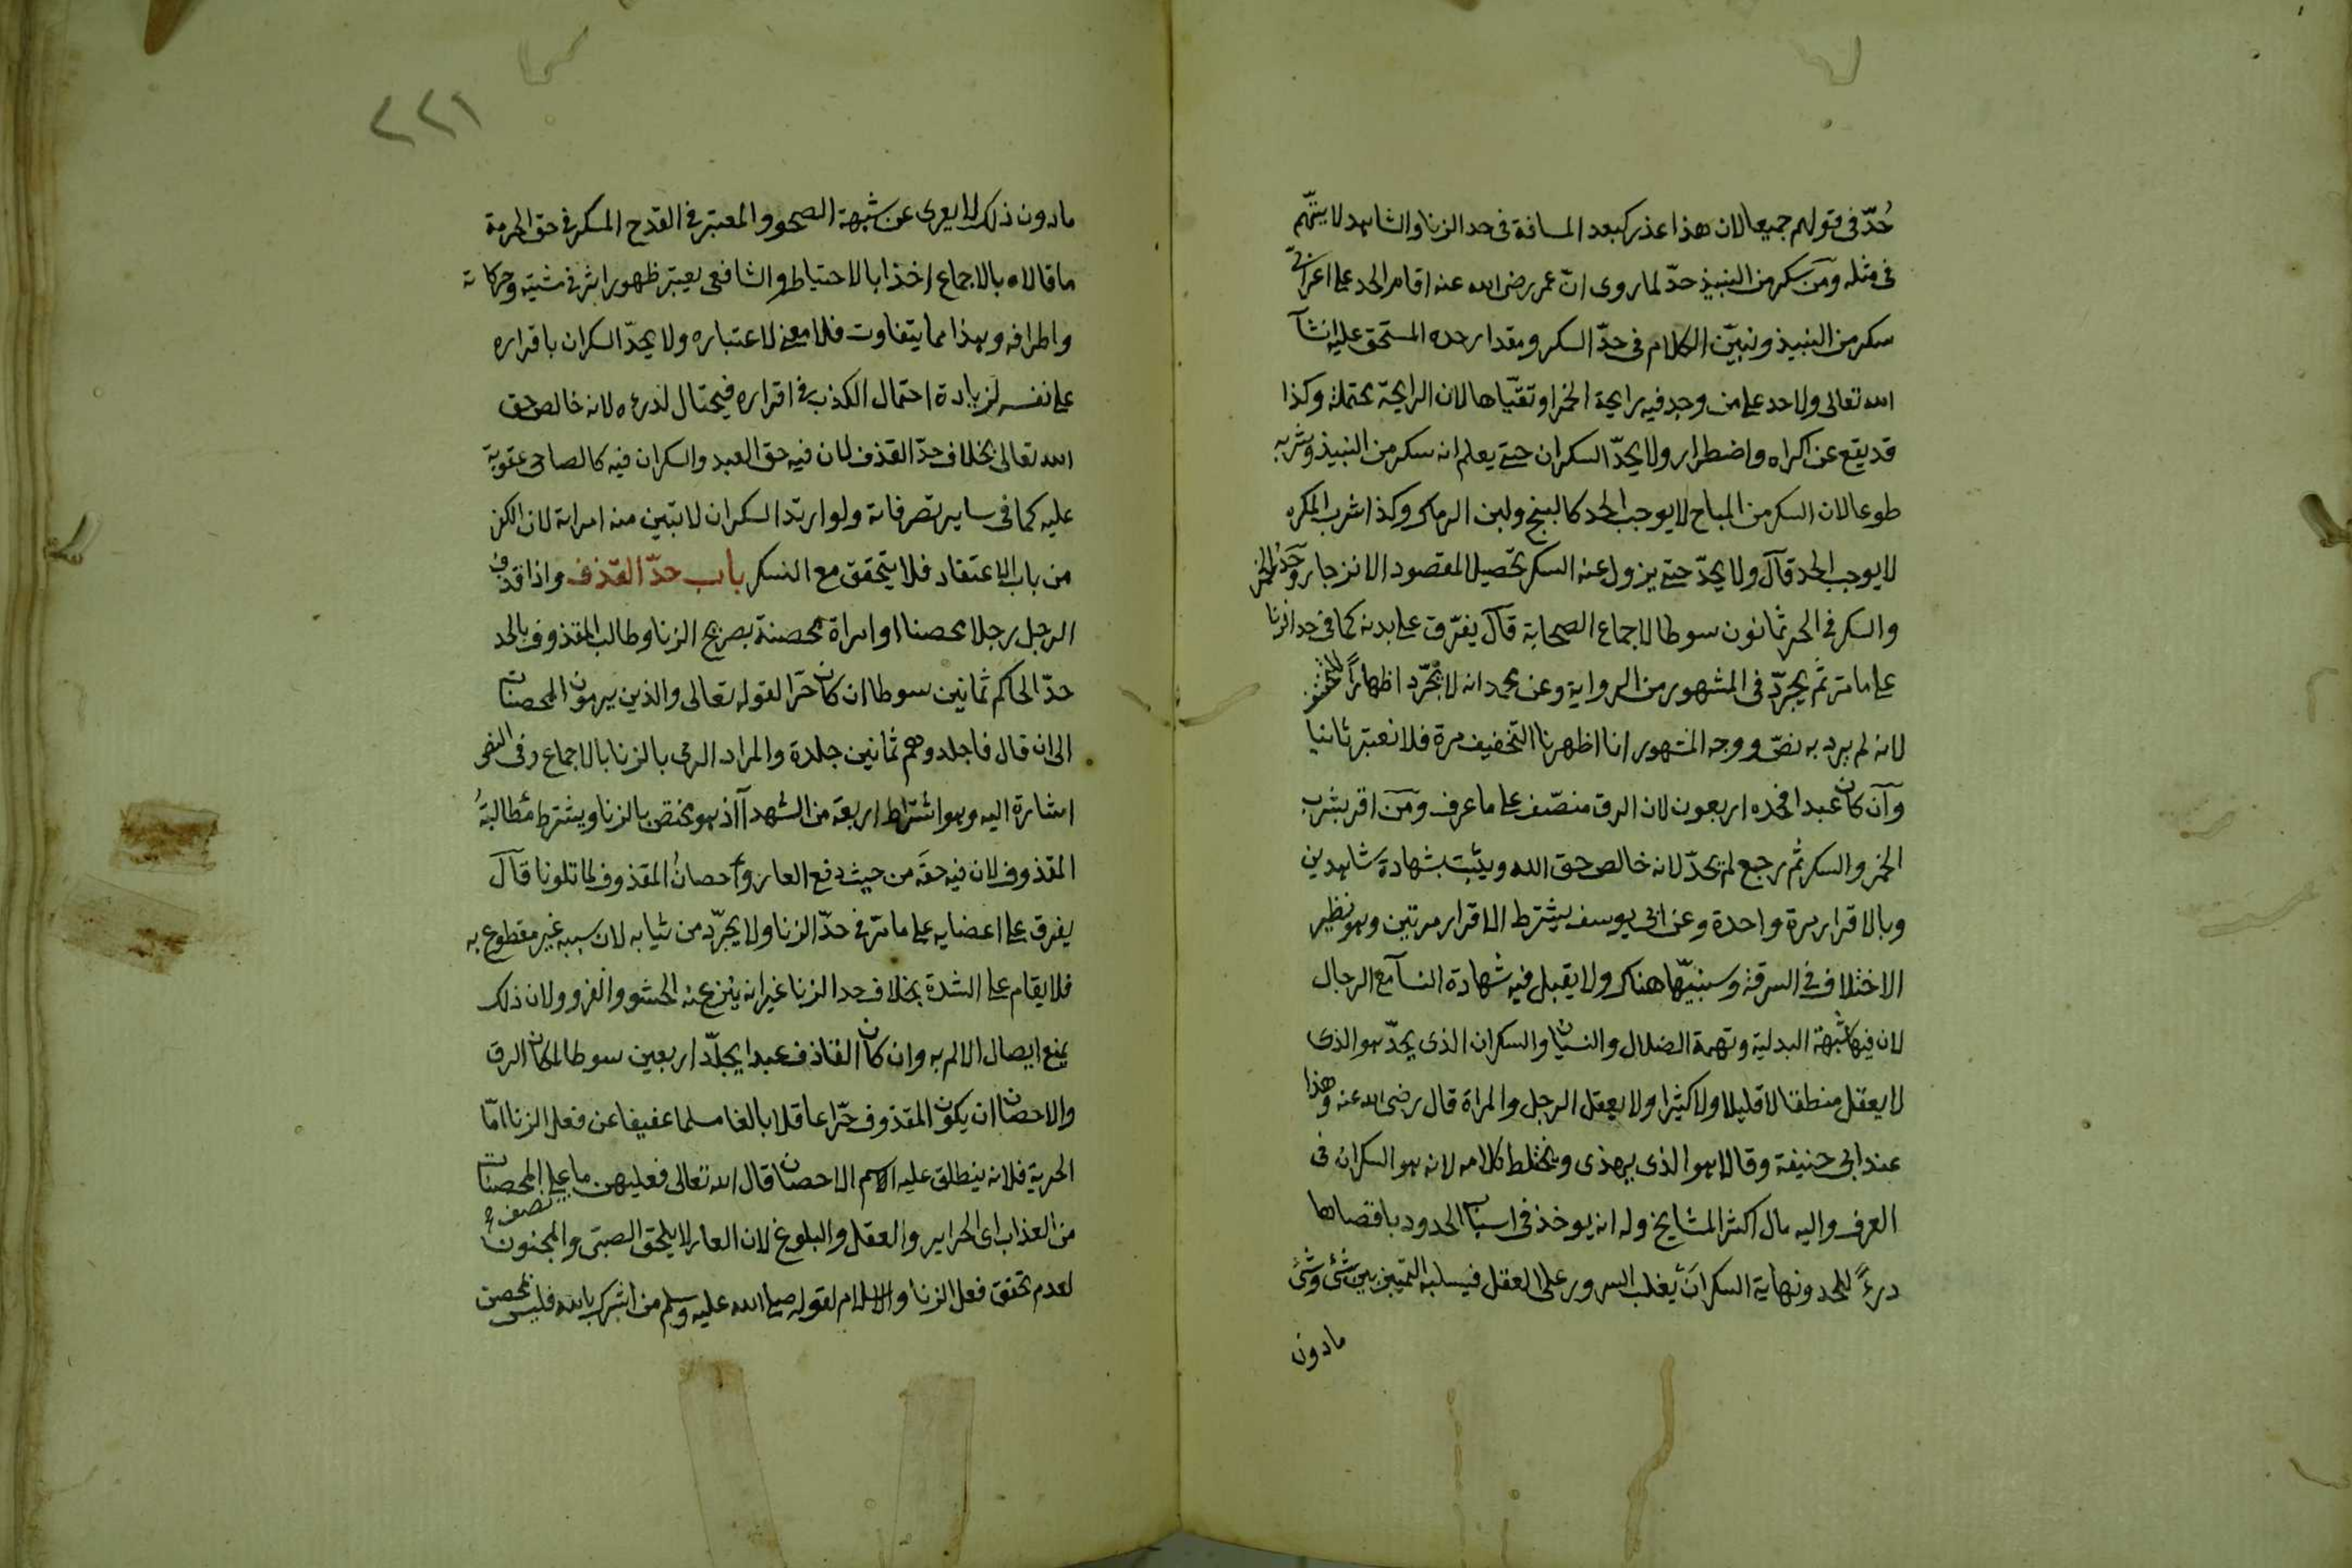 حُدّ فى قولهم جميعا لان هذا عذر كبعد المسافة فى حد الزنا والشاهد لا يتّهم
فى مثله ومن سكر من النبيذ حدّ لما روى انّ عمر رضى الله عنه اقام الحد على اعرابىّ
سكر من النبيذ ونبيّن الكلام فى حدّ السكر ومقدار حده المستحق عليه انشآ
الله تعالى ولا حد على من وجد فيه رايحة الخمر او تقيّاها لان الرايحة محتملة وكذا
قد يقع عن اكراه واضطرار ولا يحدّ السكران حتى يعلم انه سكر من النبيذ وشربه
طوعا لان السكر من المباح لا يوجب الحد كالبنج ولبن الرماك وكذا شرب المكره
لا يوجب الحد قال ولا يحدّ حتى يزول عنه السكر تحصيلا لمقصود الانزجار وحدّ الخمر
والسكر فى الحر ثمانون سوطا لاجماع الصحابة قال يفرّق على بدنه كما فى حد الزنا
على ما مر ثم يجرّد فى المشهور من الرواية وعن محمد انه لا يجّرد اظهاراً للتخفيف
لانه لم يرد به نصّ ووجه المشهور انا اظهرنا التخفيف مرة فلا نعتبر ثانيا
وان كان عبدا فحده اربعون لان الرق منصّف على ما عرف ومن اقر بشرب
الخمر والسكر ثم رجع لم يحدّ لانه خالص حق الله ويثبت بشهادة شاهدين
وبالاقرار مرة واحدة وعن ابى يوسف يشترط الاقرار مرتين وهو نظير
الاختلاف فى السرقة وسنبيّها هناك ولا يقبل فيه شهادة النسآ مع الرجال
لان فيها شبهة البدلية وتهمة الضلال والنسيان والسكران الذى يحدّ هو الذى
لا يعقل منطقا لا قليلا ولا كثيرا ولا يعقل الرجل والمراة قال رضى الله عنه وهذا
عند ابى حنيفة وقالا هو الذى يهذى ويختلط كلامه لانه هو السكران فى
العرف واليه مال اكثر المشايخ وله انه يوخذ فى اسباب الحدود باقصاها
درءً للحد ونهاية السكر ان يغلب السرور على العقل فيسلبه التمييز بين شئ وشئ
مادون
٢٢١
مادون ذلك لا يعرى عن شبهة الصحو والمعتبر فى القدح المسكر فى حق الحرمة
ما قالاه بالاجماع اخذا بالاحتياط والشافعى يعتبر ظهور اثره فى مشيته وحركاته
واطرافه وهذا مما يتفاوت فلا معنى لاعتباره ولا يحدّ السكران باقراره
على نفسه لزيادة احتمال الكذب فى اقراره فيحتال لدرءه لانه خالص حق
الله تعالى بخلاف حدّ القذف لان فيه حق العبد والسكران فيه كالصاحى عقوبة
عليه كما فى ساير تصرفاته ولو ارتدّ السكران لا تبين منه امراته لان الكفر
من باب الاعتقاد فلا يتحقق مع السكر باب حدّ القذف واذا قذف
الرجل رجلا محصنا او امراة محصنة بصريح الزنا وطالب المقذوف بالحد
حدّ الحاكم ثمانين سوطا ان كان حرّا لقوله تعالى والذين يرمون المحصنات
الى ان قال فاجلدوهم ثمانين جلدة والمراد الرمى بالزنا بالاجماع وفى النص
اشارة اليه وهو اشتراط اربعة من الشهدآ اذ هو مختص بالزنا ويشترط مطالبةُ
المقذوف لان فيه حقه من حيث دفع العار واحصانُ المقذوف لما تلونا قال
يفرق على اعضايه على ما مر فى حدّ الزنا ولا يجرّد من ثيابه لان سببه غير مقطوع به
فلا يقام على الشدة بخلاف حد الزنا غير انه ينزع عنه الحشو والفرو ولان ذلك
يمنع ايصال الالم به وان كان القاذف عبدا يجلّد اربعين سوطا لمكان الرق
والاحصان ان يكون المقذوف حرّا عاقلا بالغا مسلما عفيفا عن فعل الزنا امّا
الحرية فلانه ينطلق عليه اسم الاحصان قال الله تعالى فعليهن نصف ما على المحصنات
من العذاب اى الحراير والعقل والبلوغ لان العار لا يلحق الصبى والمجنون
لعدم تحقق فعل الزنا والاسلام لقوله صلى الله عليه وسلم من اشرك بالله فليس بمحصن